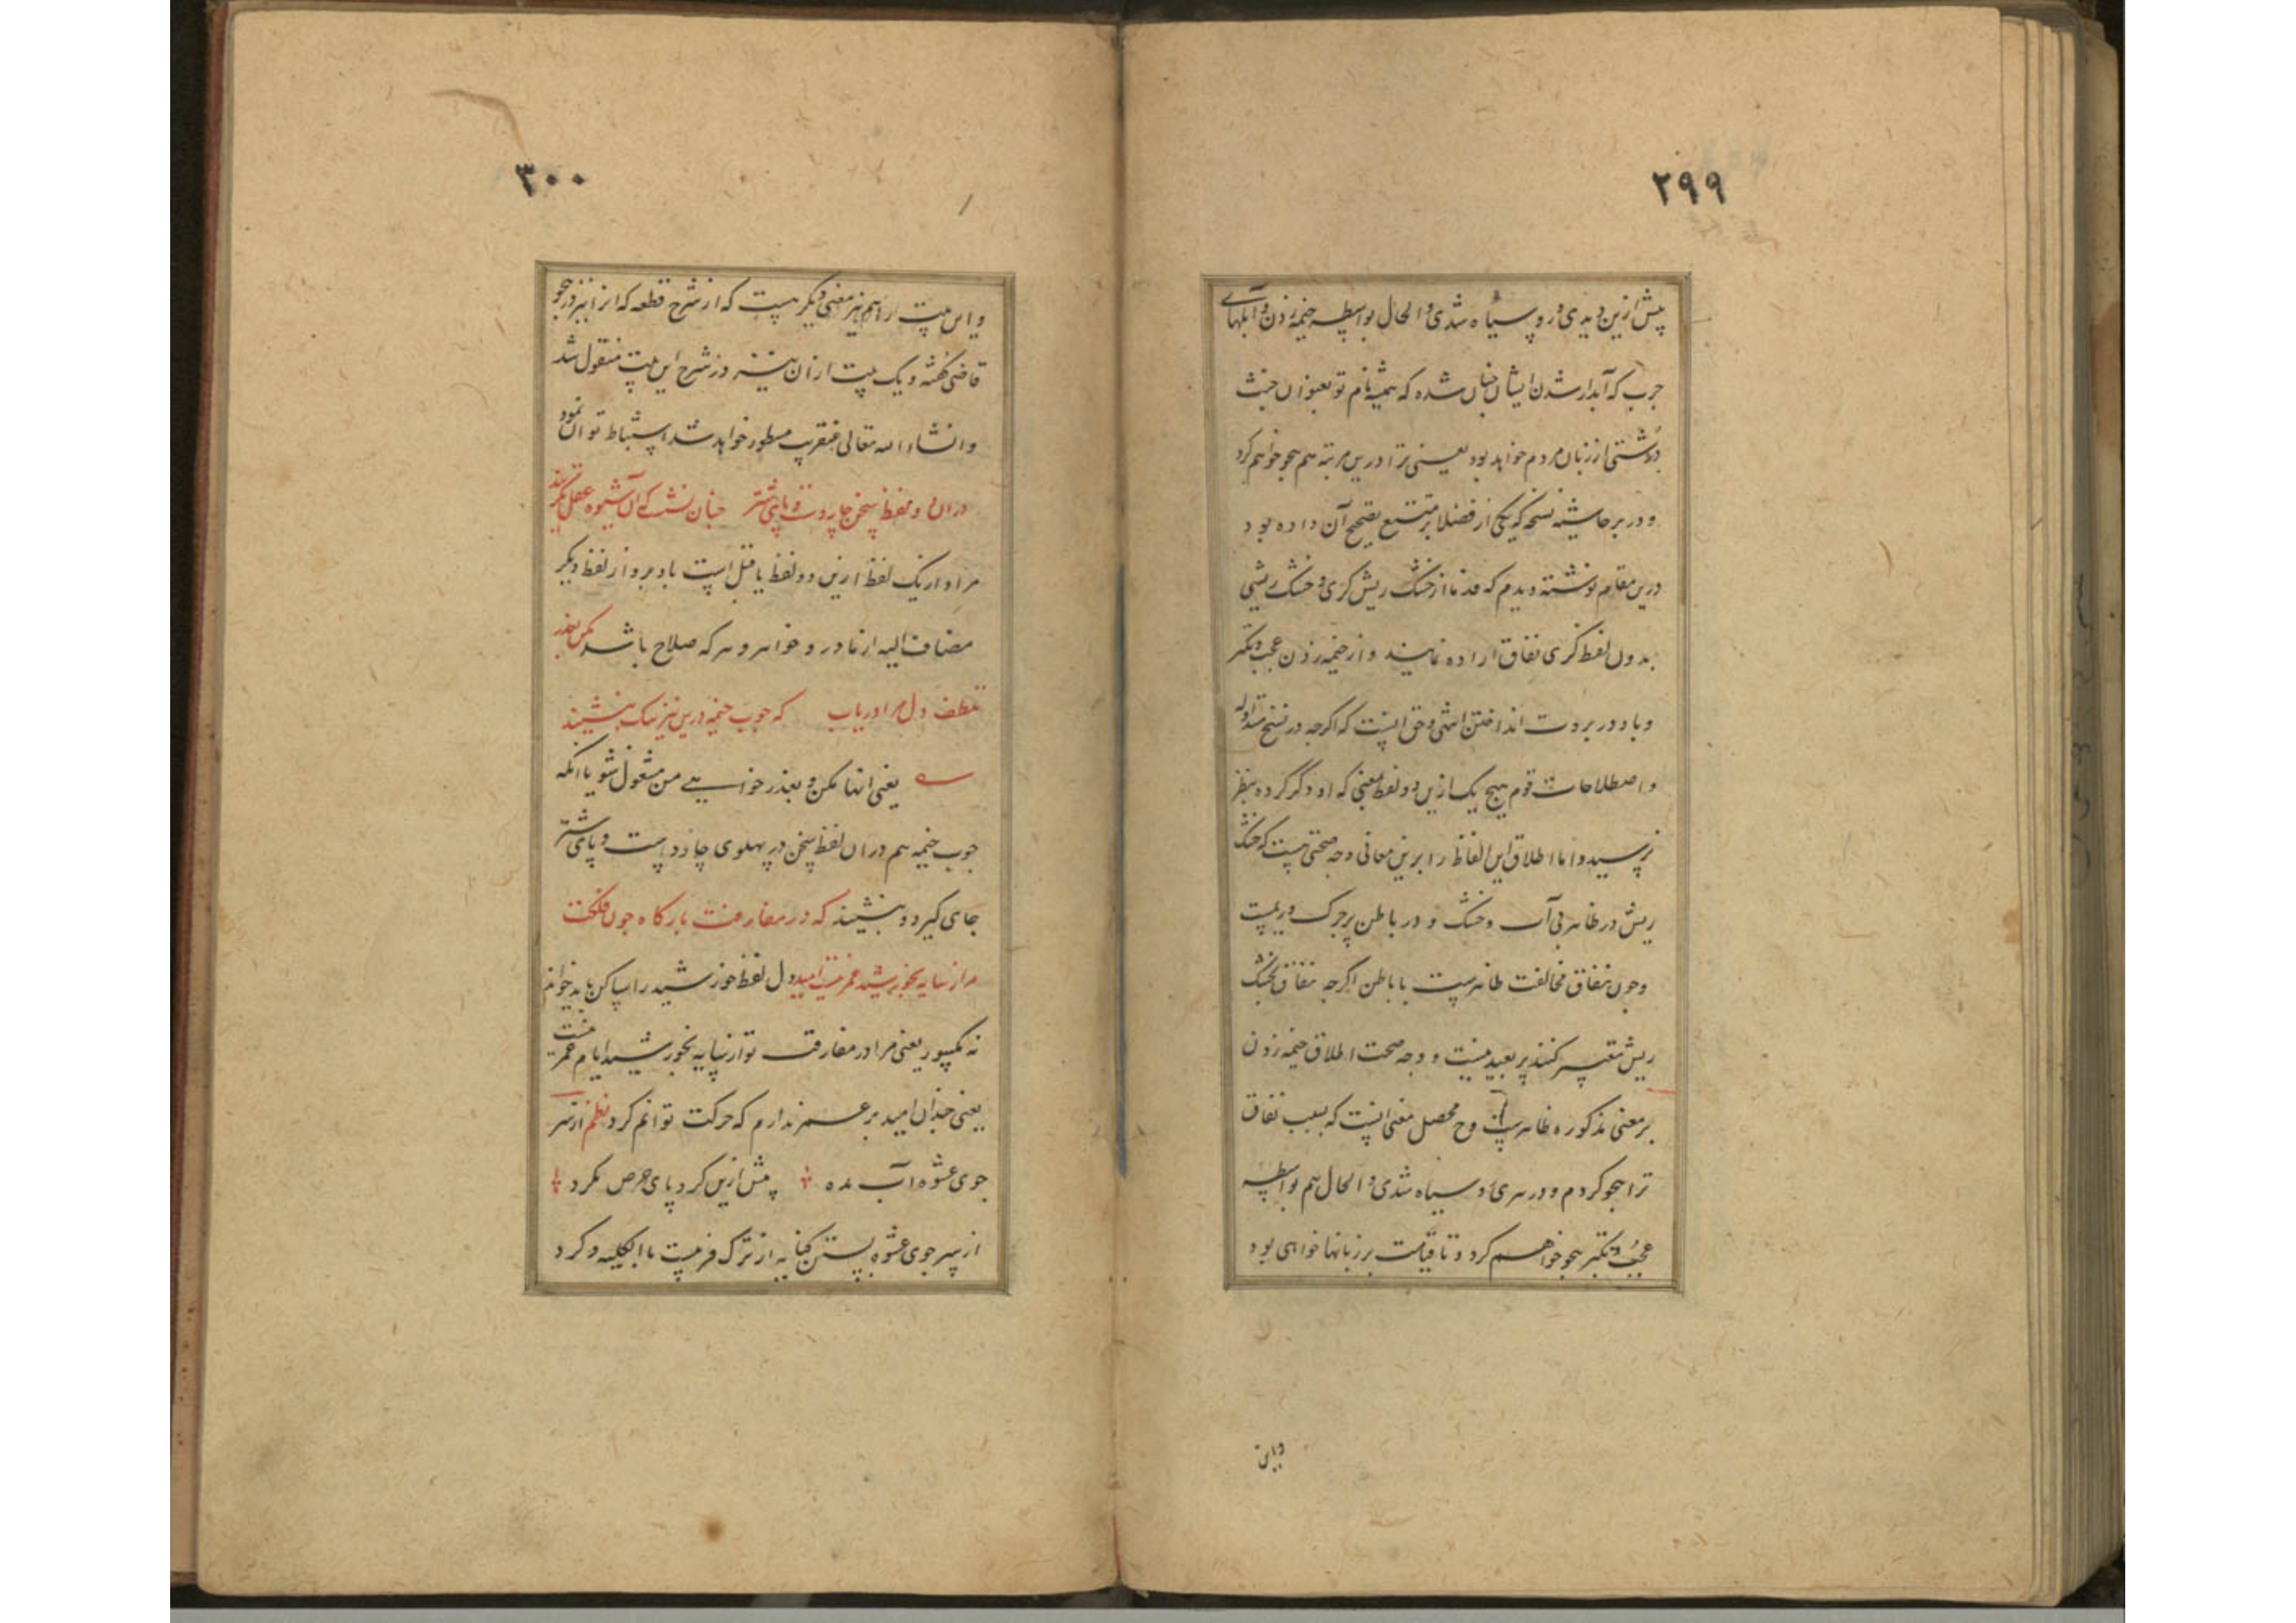 ۲۹۹
پیش ازین دیدی و رو سیاه شدی و الحال بواسطه خیمه زدن و آبلهای
جرب که آبدار شدن ایشان چنان شده که همیشه نام تو بعنوان خبث
و زشتی از زبان مردم خواهد بود یعنی ترا درین مرتبه هم هجو خواهم کرد
و در بر حاشیه نسخه که یکی از فضلا بر تتبع تصحیح آن داده بود
درین مقام نوشته دیدم که قدما از خشک ریش گری و خشک ریشی
بدون لفظ گری نفاق اراده نمایند و از خیمه زدن عجب و تکبر
و باد در بروت انداختن انتهی و حق اینست که اگرچه در نسخ متداوله
و اصطلاحات قوم هیچ یک ازین دو لفظ بمعنی که او ذکر کرده بنظر
نرسیده و اما اطلاق این الفاظ را برین معانی وجه صحتی هست که خشک
ریش در ظاهر بی آب و خشک و در باطن پر چرک و ریمست
و چون نفاق مخالفت ظاهرست با باطن اگرچه نفاق بخشک
ریش تعبیر کنند پر بعید نیست و وجه صحت اطلاق خیمه زدن
بر معنی مذکوره ظاهرست و ح محصل معنی اینست که بسبب نفاق
ترا هجو کردم و در سری و سیاه شدی و الحال هم بواسطه
عجب و تکبر هجو خواهم کرد و تا قیامت بر زبانها خواهی بود
واین
۳۰۰
و این بیت را هم نیز معنی دیگر هست که از شرح قطعه که انرا نیز در هجو
قاضی گفته و یک بیت از آن نیز در شرح این بیت منقول شد
و انشاء الله تعالی عنقریب مسطور خواهد شد استنباط توان نمود
دران دو لفظ سخن چاردست و پای شتر چنان نشست که آن شیوه عقل نگزیند
مراد از یک لفظ ازین دو لفظ یا قبل است یا دبر و از لفظ دیگر
مضاف الیه از مادر و خواهر و هر که صلاح باشد مکن بعذر
تلطف دل مرا دریاب که چوب خیمه درین نیز نیک بنشیند
یعنی انها مکن و بعذر خواهی من مشغول شو یا انکه
چوب خیمه هم دران لفظ سخن در پهلوی چاردست و پای شتر
جای گیرد و بنشیند که در مفارقت بارگاه چون فلکت
مرا ز سایه بخورشید عمر نیست امید ول لفظ خورشید را ساکن باید خواند
نه مکسور یعنی مرا در مفارقت تو از سایه بخورشید ایام عمر نیست
یعنی چندان امید بر عمر ندارم که حرکت توانم کرد نظم از سر
جوی عشوه آب مده پیش ازین گرد پای حرص مگرد
از سر جوی عشوه بستن کنایه از ترک فریبست بالکلیه و گرد